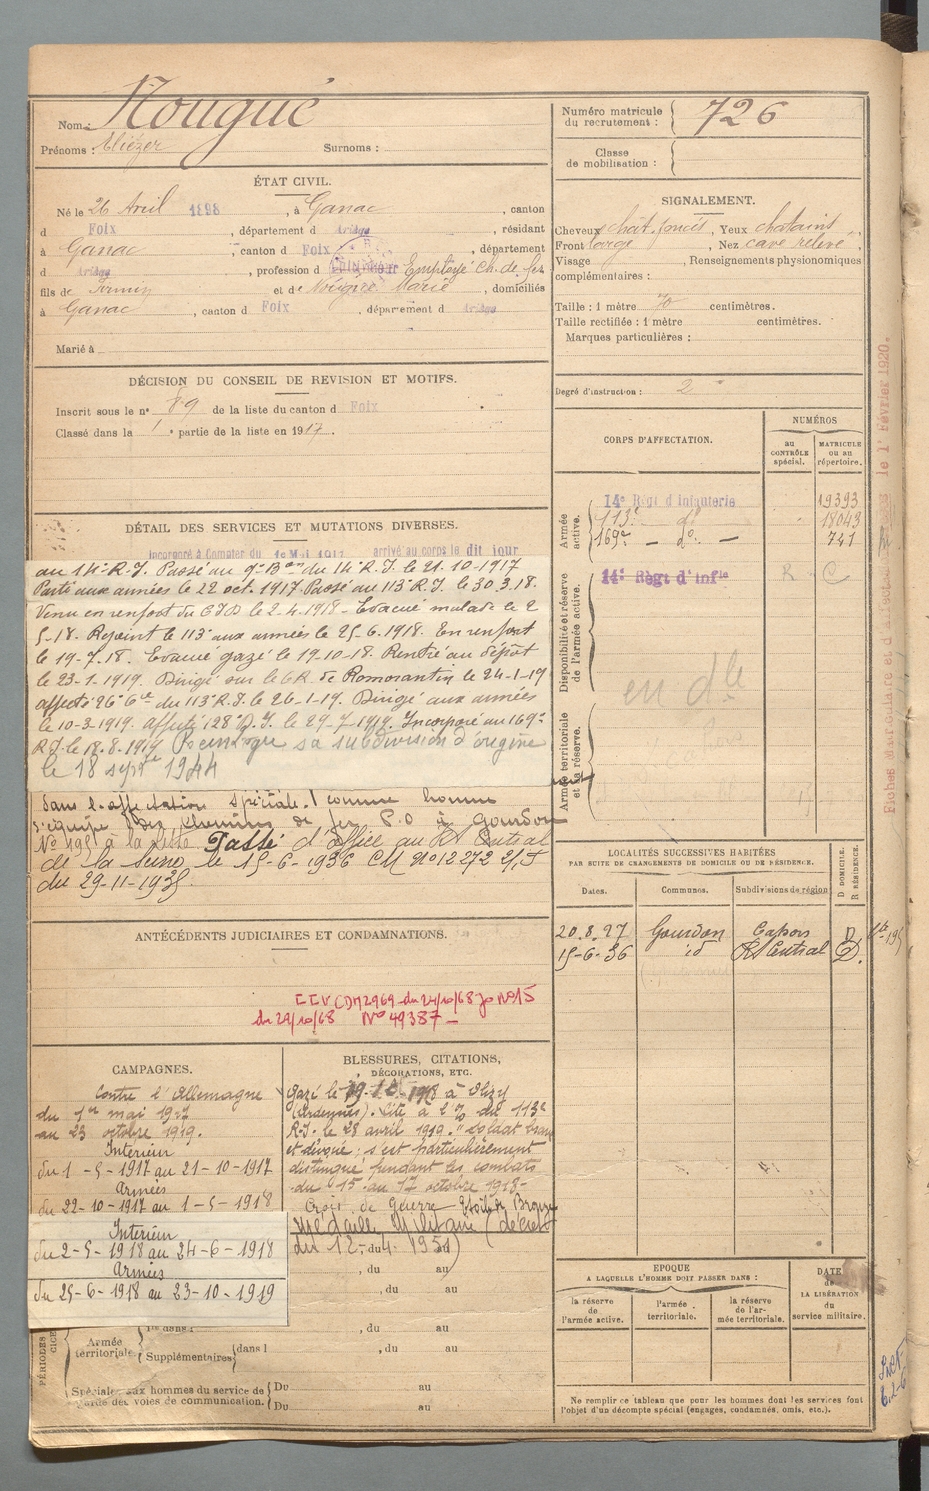 Nom : Nougué
Prénoms : Eliézer Surnoms :
ÉTAT CIVIL.
Né le 26 Avril 1898, à Ganac, canton
d Foix, département d Ariège, résidant
à Ganac, canton d Foix, département
d Ariège, profession d Employé Ch. de fer
fils de Firmin et de Nougué Marie, domiciliés
à Ganac, canton d Foix, département d Ariège
Marié à
DÉCISION DU CONSEIL DE REVISION ET MOTIFS.
Inscrit sous le n° 89 de la liste du canton d Foix
Classé dans la 1e partie de la liste en 1917.
DÉTAIL DES SERVICES ET MUTATIONS DIVERSES.
Incorporé à Compter du 1er Mai 1917 arrivé au corps le dit jour
au 14e R.I. Passé au 9e Bon du 14e R.I. le 21.10-1917
Parti aux armées le 22 oct. 1917 Passé au 113e R.I. le 30.3.18.
Venu en renfort du C.I.D le 2-4-1918 - Evacué malade le 2
5-18. Rejoint le 113e aux armées le 25-6.1918. En renfort
le 19-7-18. Evacué gazé le 19-10-18. Rentré au dépôt
le 23-1-1919. Dirigé sur le de Romorantin le 24-1-19
affecté 26e Cie du 113e R.I. le 26-1-19. Dirigé aux armées
le 10-3-1919. affecté 128e D.I. le 29-7-1919. Incorporé au 169e
R.I. le 18-8-1919 sa subdivision d'origine
le 18 septe 1944
dans l'affectation spéciale. comme homme
d'équipe des chemins de fer P.O à Gourdon
à la liste Passé d'office au Rt Central
de la Seine le 15-6-1936 CM N° 12272
du 29-11-1935.
ANTÉCÉDENTS JUDICIAIRES ET CONDAMNATIONS.
CDM2969 du 24/10/68 Jo N°15
du 29/10/68 N° 49387 -
CAMPAGNES.
Contre l'Allemagne
du 1er mai 1917
au 23 octobre 1919.
Intérieur
du 1-5-1917 au 21-10-1917
Armées
du 22-10-1917 au 1-5-1918
Intérieur
du 2-5-1918 au 24-6-1918
Armées
du 25-6-1918 au 23-10-1919
BLESSURES, CITATIONS,
DÉCORATIONS, ETC.
Gazé le 19-10-1918 à Olizy
(Ardennes). Cité à l'o/ du 113e
R.I. le 28 avril 1919. "Soldat brave
et dévoué ; s'est particulièrement
distingué pendant les combats
du 15 au 17 octobre 1918-
Croix de Guerre Etoile de Bronze
Médaille Militaire (décret
du 12-4-1951)
, du au
, du au
, du au
PÉRIODES
Armée
territoriale
dans l , du au
Supplémentaires dans l , du au
Spéciales aux hommes du service de
garde des voies de communication. Du au
Du au
Numéro matricule
du recrutement : 726
Classe
de mobilisation :
SIGNALEMENT.
Cheveux chât. foncés, Yeux chatains
Front large, Nez cave relevé
Visage , Renseignements physionomiques
complémentaires :
Taille : 1 mètre 70 centimètres.
Taille rectifiée : 1 mètre centimètres.
Marques particulières :
Degré d'instruction : 2
CORPS D'AFFECTATION.
NUMÉROS
au
CONTRÔLE
spécial.
MATRICULE
ou au
répertoire.
Armée
active.
14e Régt d'Infanterie 19393
113e - do- 18043
169e - do - 741
Disponibilité et réserve
de l'armée active.
14e Régt d'Infie R C
en dle
Armée territoriale
et sa réserve.
LOCALITÉS SUCCESSIVES HABITÉES
PAR SUITE DE CHANGEMENTS DE DOMICILE OU DE RÉSIDENCE.
Dates. Communes. Subdivisions de région D DOMICILE.
R RÉSIDENCE.
20.8.27 Gourdon Cahors D
15-6-36 id Rt Central D.
EPOQUE
A LAQUELLE L'HOMME DOIT PASSER DANS :
la réserve
de
l'armée active.
l'armée
territoriale.
la réserve
de l'ar-
mée territoriale.
DATE
de
LA LIBÉRATION
du
service militaire.
Ne remplir ce tableau que pour les hommes dont les services font
l'objet d'un décompte spécial (engagés, condamnés, omis, etc.).
le 1er Février 1920.